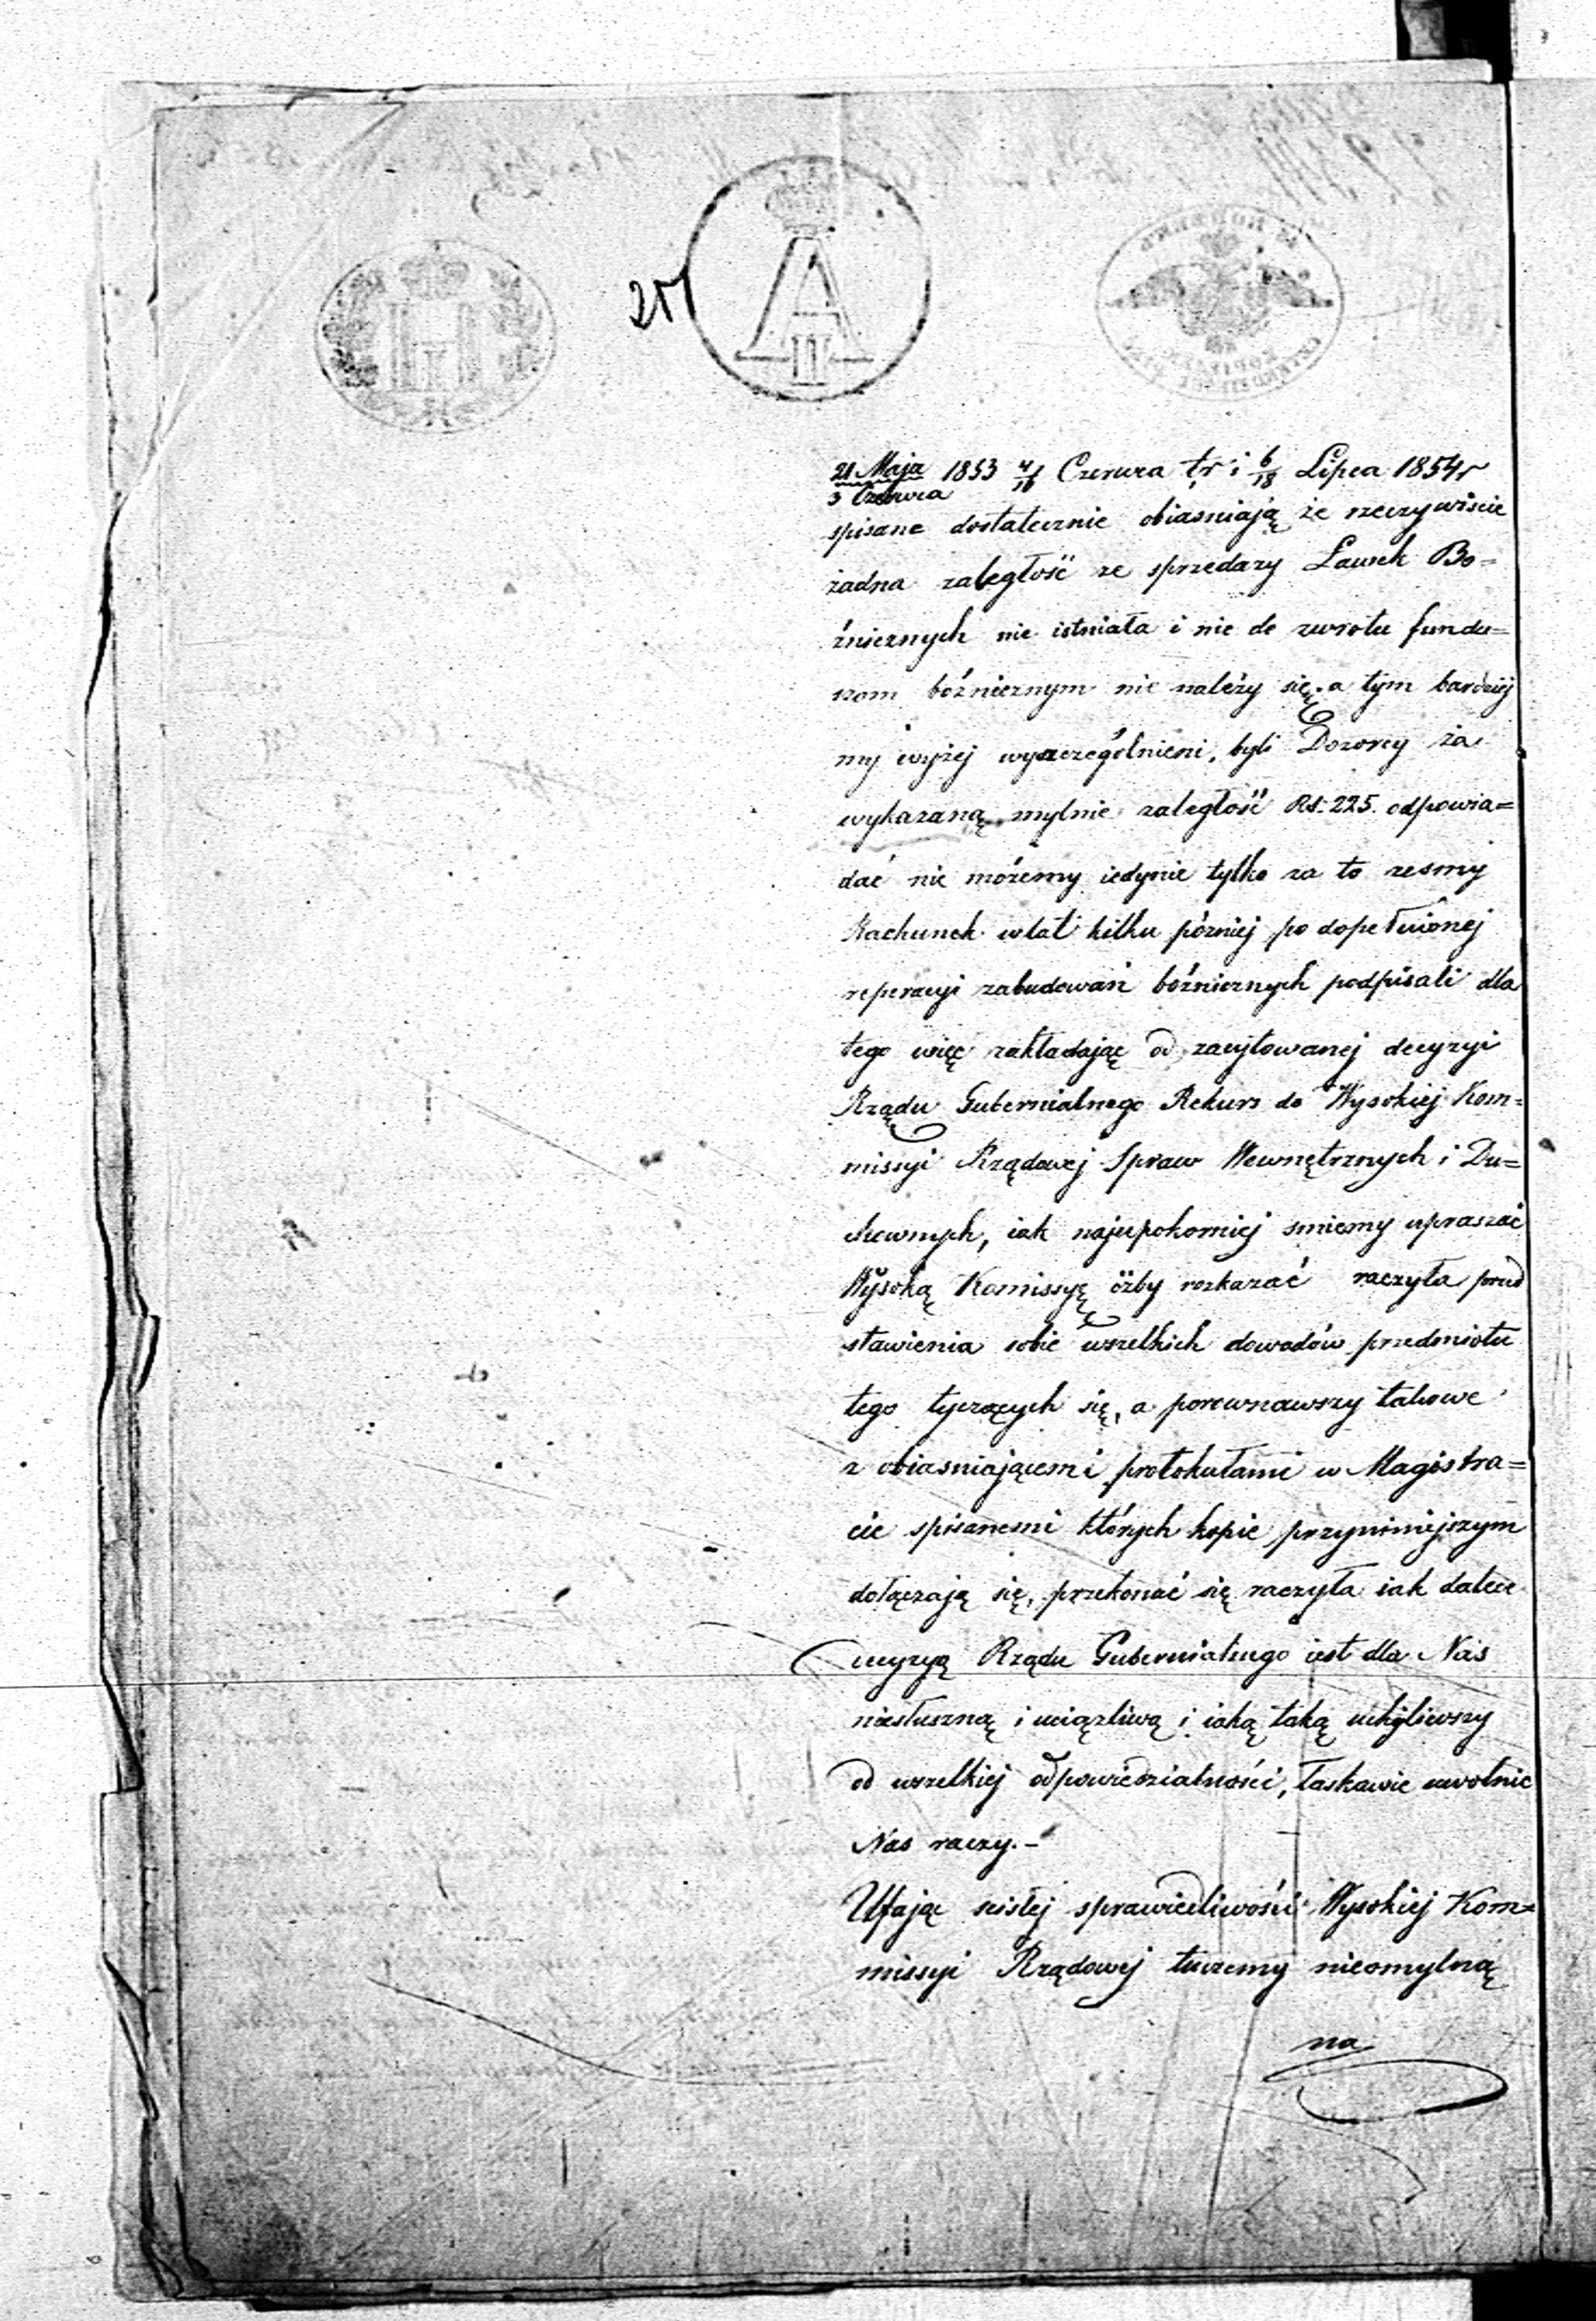 257
21 Maja 1853 4/16 Czerwca tr i 6/18 Lipca 1854r
3 Czerwca
spisane dostatecznie obiasniają że rzeczywiście
żadna zaległość ze sprzedazy Ławek Bo=
żnicznych nie istniała i nic do zwrotu fundu=
szom bóżnicznym nie należy się, a tym bardziej
my wyżej wyszczególnieni, byli Dozorcy za
wykazaną mylnie zaległość Rs. 225. odpowia=
dać nie możemy iedynie tylko za to zesmy
Rachunek w lat kilku później po dopełnionej
reperacyi zabudowań bóżnicznych podpisali dla
tego więc zakładając od zacytowanej decyzyi
Rządu Gubernialnego Rekurs do Wysokiej Kom=
missyi Rządowej Spraw Wewnętrznych i Du=
chownych, iak najupokorniej smiemy upraszać
Wysoką Komissyę ażby rozkazać raczyła przed
stawienia sobie wszelkich dowodów przedmiotu
tego tyczących się, a porownawszy takowe
z obiasniającemi protokułami w Magistra=
cie spisanemi których kopie przyniniejszym
dołączają się, przekonać się raczyła iak dalece
decyzyą Rządu Gubernialnego iest dla Nas
niesłuszną i uciązliwą i iaką taką uchyliwszy
od wszelkiej odpowiedzialności, łaskawie uwolnic
Nas raczy.-
Ufając scisłej sprawiedliwości Wysokiej Kom=
missyi Rządowej tuszemy nieomylną
na